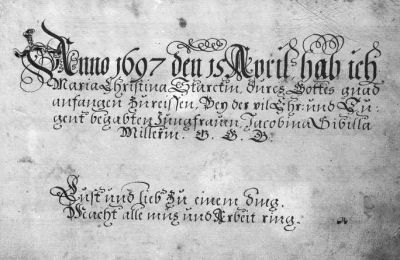 Anno 1697 den 15 April hab ich
Maria Christina Starctin, durch Gottes gnad
anfangen Zureissen, Bey der vil Ehr: und Tu-
gent begabten Jungfrauen, Jacobina Sibilla
Millerin. G. G. G.
Lust und lieb Zu einem ding,
Macht alle müs und Arbeit ring.